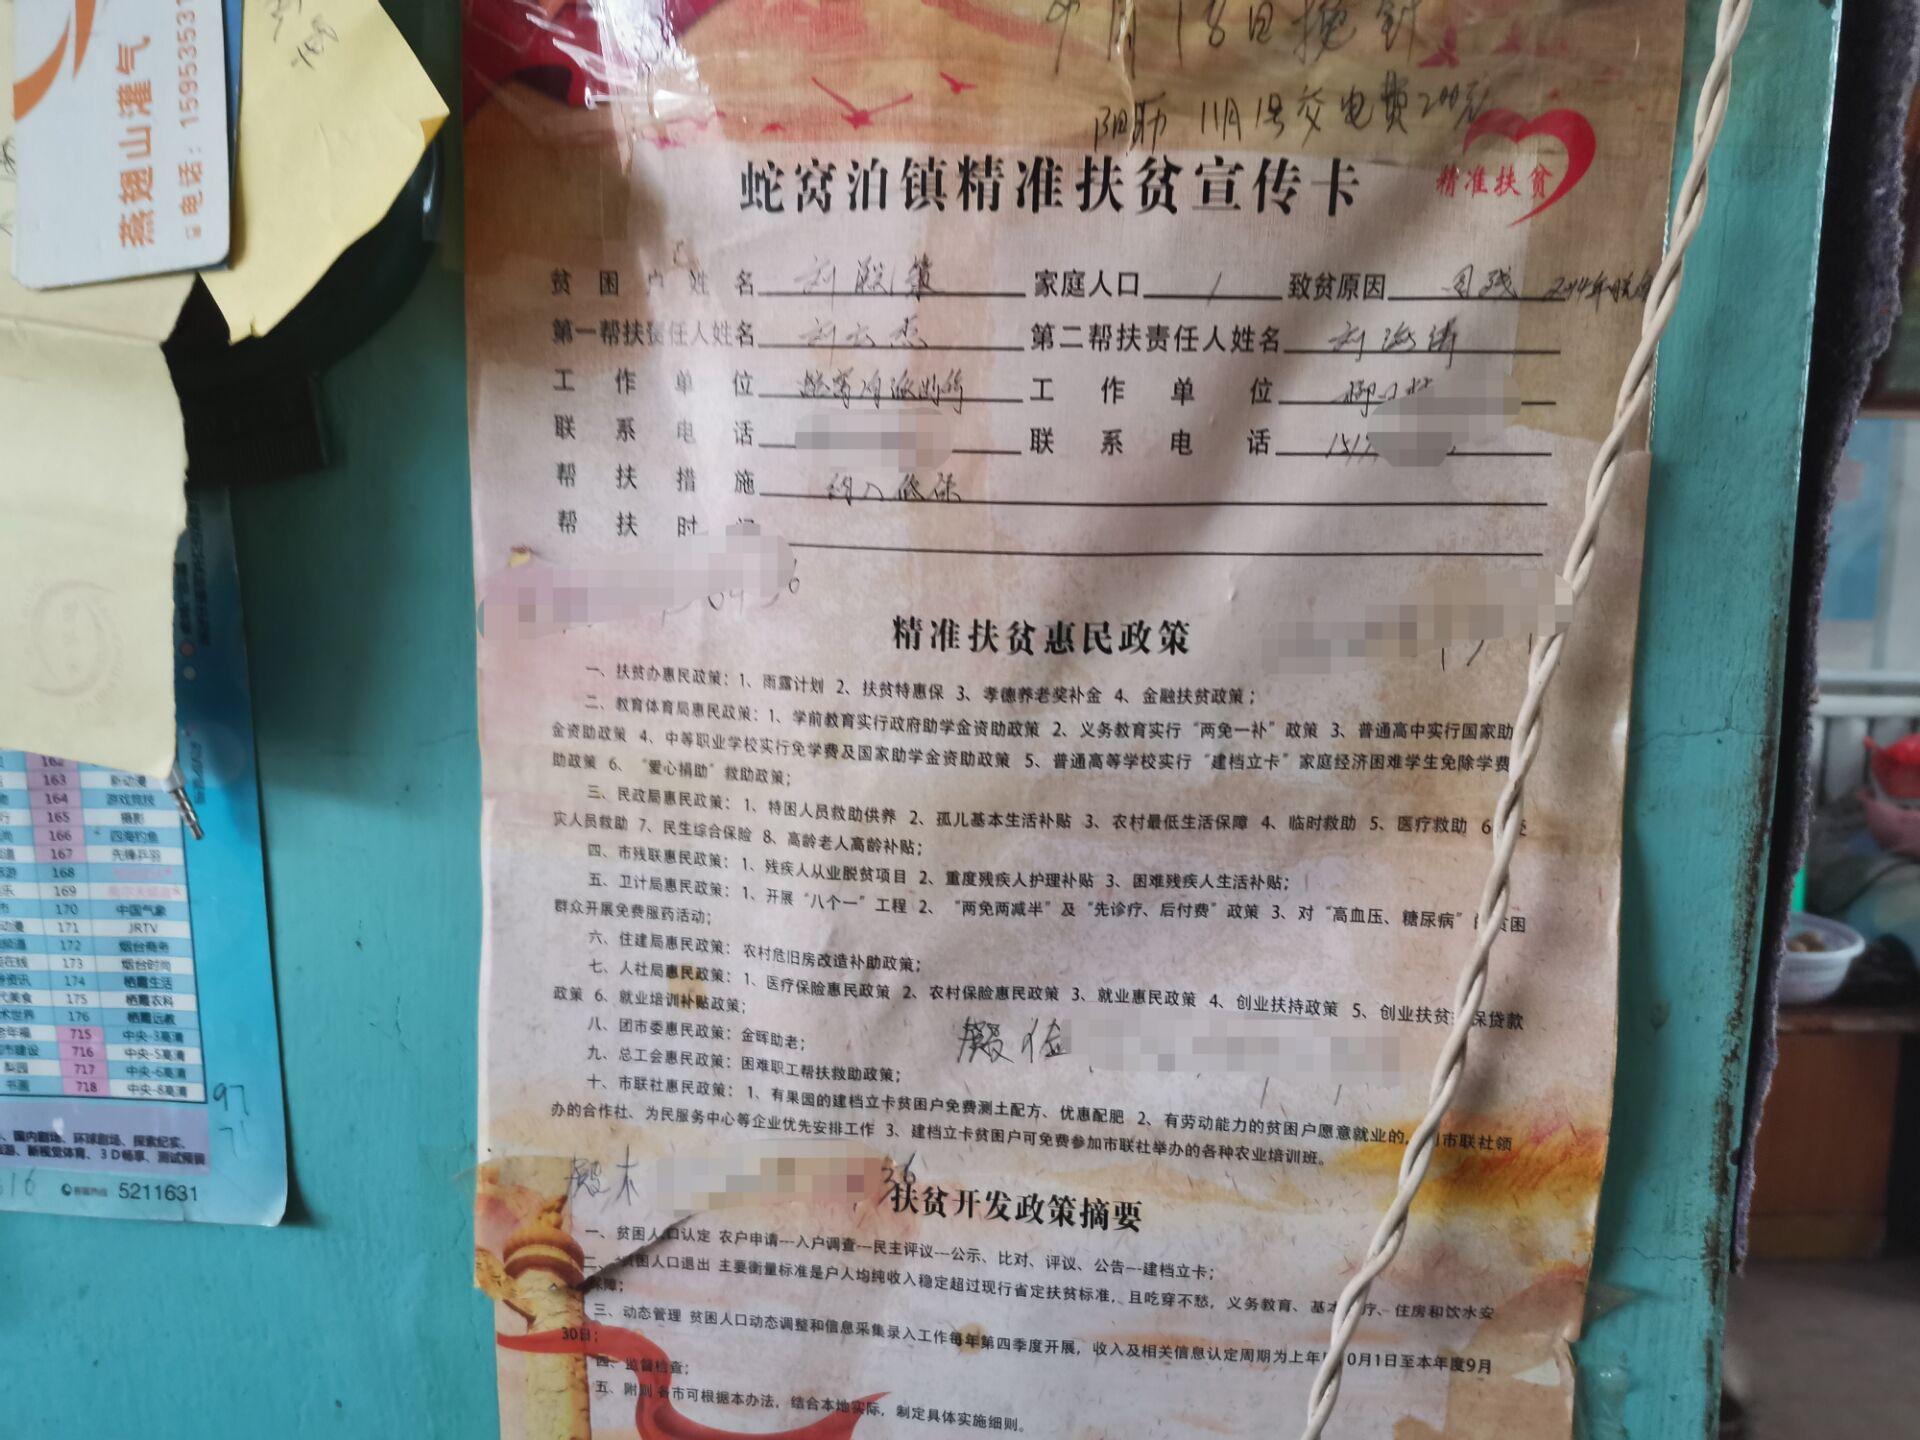 9月18日换针
阴历 11月1号交电费200元
燕翅山灌气
电话：1595353
蛇窝泊镇精准扶贫宣传卡
精准扶贫
贫困户姓名 家庭人口 1 致贫原因 因残
第一帮扶责任人姓名 刘云杰 第二帮扶责任人姓名 刘海涛
工作单位 工作单位
联系电话 联系电话 151
帮扶措施 纳入低保
帮扶时
精准扶贫惠民政策
一、扶贫办惠民政策：1、雨露计划 2、扶贫特惠保 3、孝德养老奖补金 4、金融扶贫政策；
二、教育体育局惠民政策：1、学前教育实行政府助学金资助政策 2、义务教育实行“两免一补”政策 3、普通高中实行国家助
金资助政策 4、中等职业学校实行免学费及国家助学金资助政策 5、普通高等学校实行“建档立卡”家庭经济困难学生免除学费
助政策 6、“爱心捐助”救助政策；
三、民政局惠民政策：1、特困人员救助供养 2、孤儿基本生活补贴 3、农村最低生活保障 4、临时救助 5、医疗救助 6
灾人员救助 7、民生综合保险 8、高龄老人高龄补贴；
四、市残联惠民政策：1、残疾人从业脱贫项目 2、重度残疾人护理补贴 3、困难残疾人生活补贴；
五、卫计局惠民政策：1、开展“八个一”工程 2、“两免两减半”及“先诊疗、后付费”政策 3、对“高血压、糖尿病” 贫困
群众开展免费服药活动；
六、住建局惠民政策：农村危旧房改造补助政策；
七、人社局惠民政策：1、医疗保险惠民政策 2、农村保险惠民政策 3、就业惠民政策 4、创业扶持政策 5、创业扶贫 保贷款
政策 6、就业培训补贴政策；
八、团市委惠民政策：金晖助老；
九、总工会惠民政策：困难职工帮扶救助政策；
十、市联社惠民政策：1、有果园的建档立卡贫困户免费测土配方、优惠配肥 2、有劳动能力的贫困户愿意就业的， 市联社领
办的合作社、为民服务中心等企业优先安排工作 3、建档立卡贫困户可免费参加市联社举办的各种农业培训班。
36
扶贫开发政策摘要
一、贫困人口认定 农户申请---入户调查---民主评议---公示、比对、评议、公告---建档立卡；
二、贫困人口退出 主要衡量标准是户人均纯收入稳定超过现行省定扶贫标准，且吃穿不愁，义务教育、基本 疗、住房和饮水安
保障；
三、动态管理 贫困人口动态调整和信息采集录入工作每年第四季度开展，收入及相关信息认定周期为上年 0月1日至本年度9月
30日；
四、监督检查；
五、附则 各市可根据本办法，结合本地实际，制定具体实施细则。
162
163 新动漫
164 游戏竞技
165 摄影
166 四海钓鱼
167 先锋乒羽
168
169
170 中国气象
171 JRTV
172 烟台商务
173 烟台时尚
174 栖霞生活
175 栖霞农科
176 栖霞远教
715 中央-3高清
716 中央-5高清
梨园 717 中央-6高清
书画 718 中央-8高清
97
国内剧场、环球剧场、探索纪实、
新视觉体育、3D畅享、测试预留
5211631